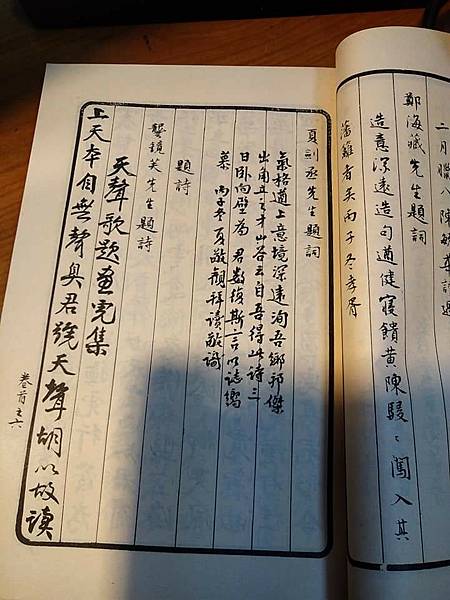 二月臘八陳
鄭海藏先生題詞
造意深遠造句遒健寢饋黃陳駸〻闖入其
藩籬者矣丙子冬孝胥
夏劍丞先生題詞
氣格遒上意境深遠洵吾鄉邦傑
出角立之才山谷云自吾得此詩三
日臥向壁為君數復斯言以誌嚮
慕 丙子冬夏敬觀拜讀敬識
題詩
鏡芙先生題詩
天聲歌題畫虎集
上天本自無聲臭君說天聲胡以故讀
卷首之六